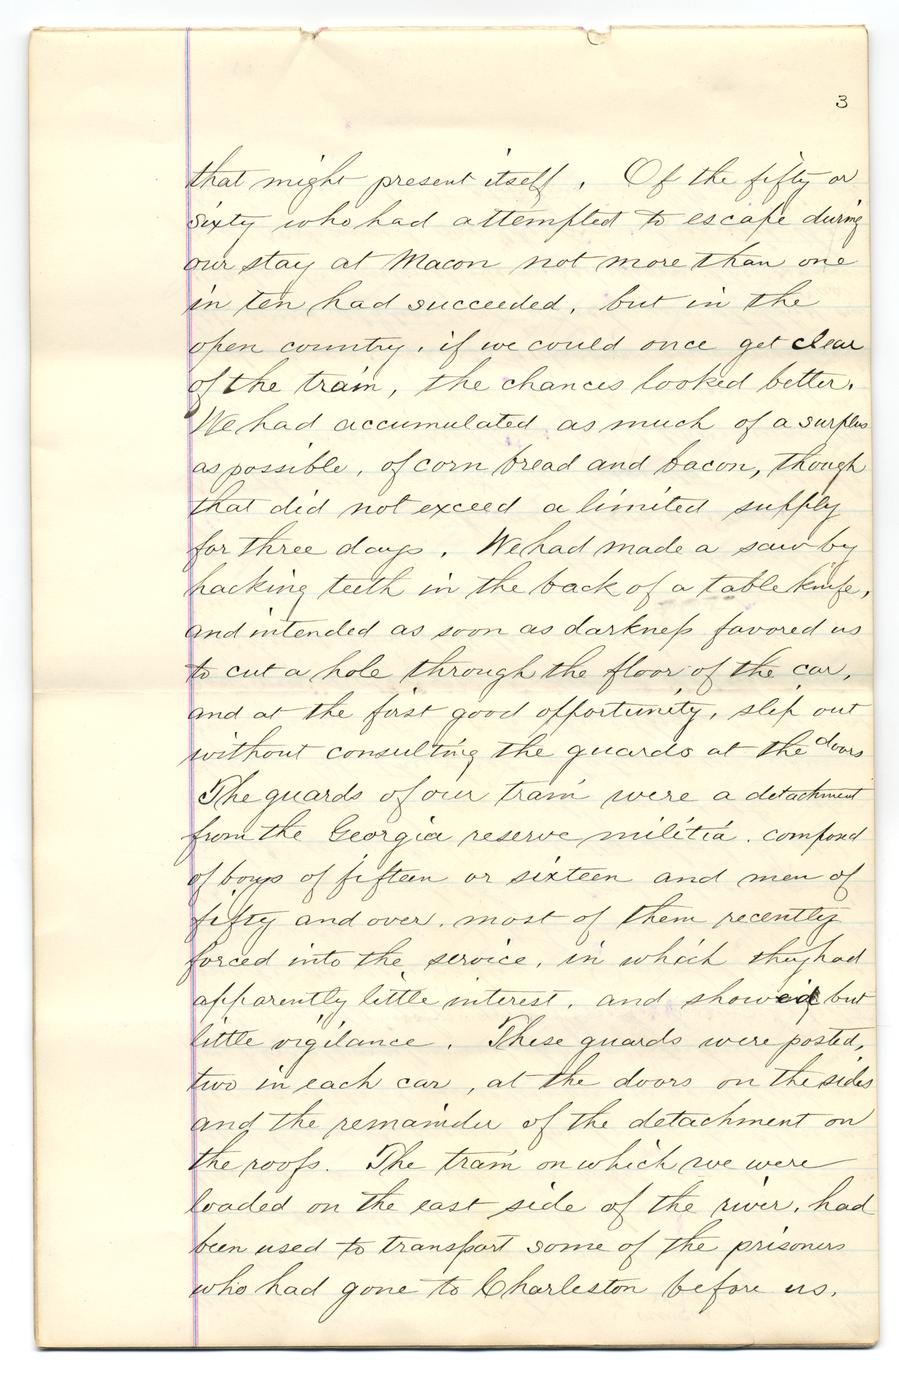 3
that might present itself. Of the fifty or
sixty who had attempted to escape during
our stay at Macon not more than one
in ten had succeeded, but in the
open country, if we could once get clear
of the train, the chances looked better.
We had accumulated as much of a surplus
as possible, of corn bread and bacon, though
that did not exceed a limited supply
for three days. We had made a saw by
hacking teeth in the back of a table knife,
and intended as soon as darkness favored us
to cut a hole through the floor of the car,
and at the first good opportunity, slip out
without consulting the guards at the doors
The guards of our train were a detachment
from the Georgia reserve militia, composed
of boys of fifteen or sixteen and men of
fifty and over, most of them recently
forced into the service, in which they had
apparently little interest, and showed but
little vigilance. These guards were posted,
two in each car, at the doors on the sides
and the remainder of the detachment on
the roofs. The train on which we were
loaded on the east side of the river, had
been used to transport some of the prisoners
who had gone to Charleston before us.